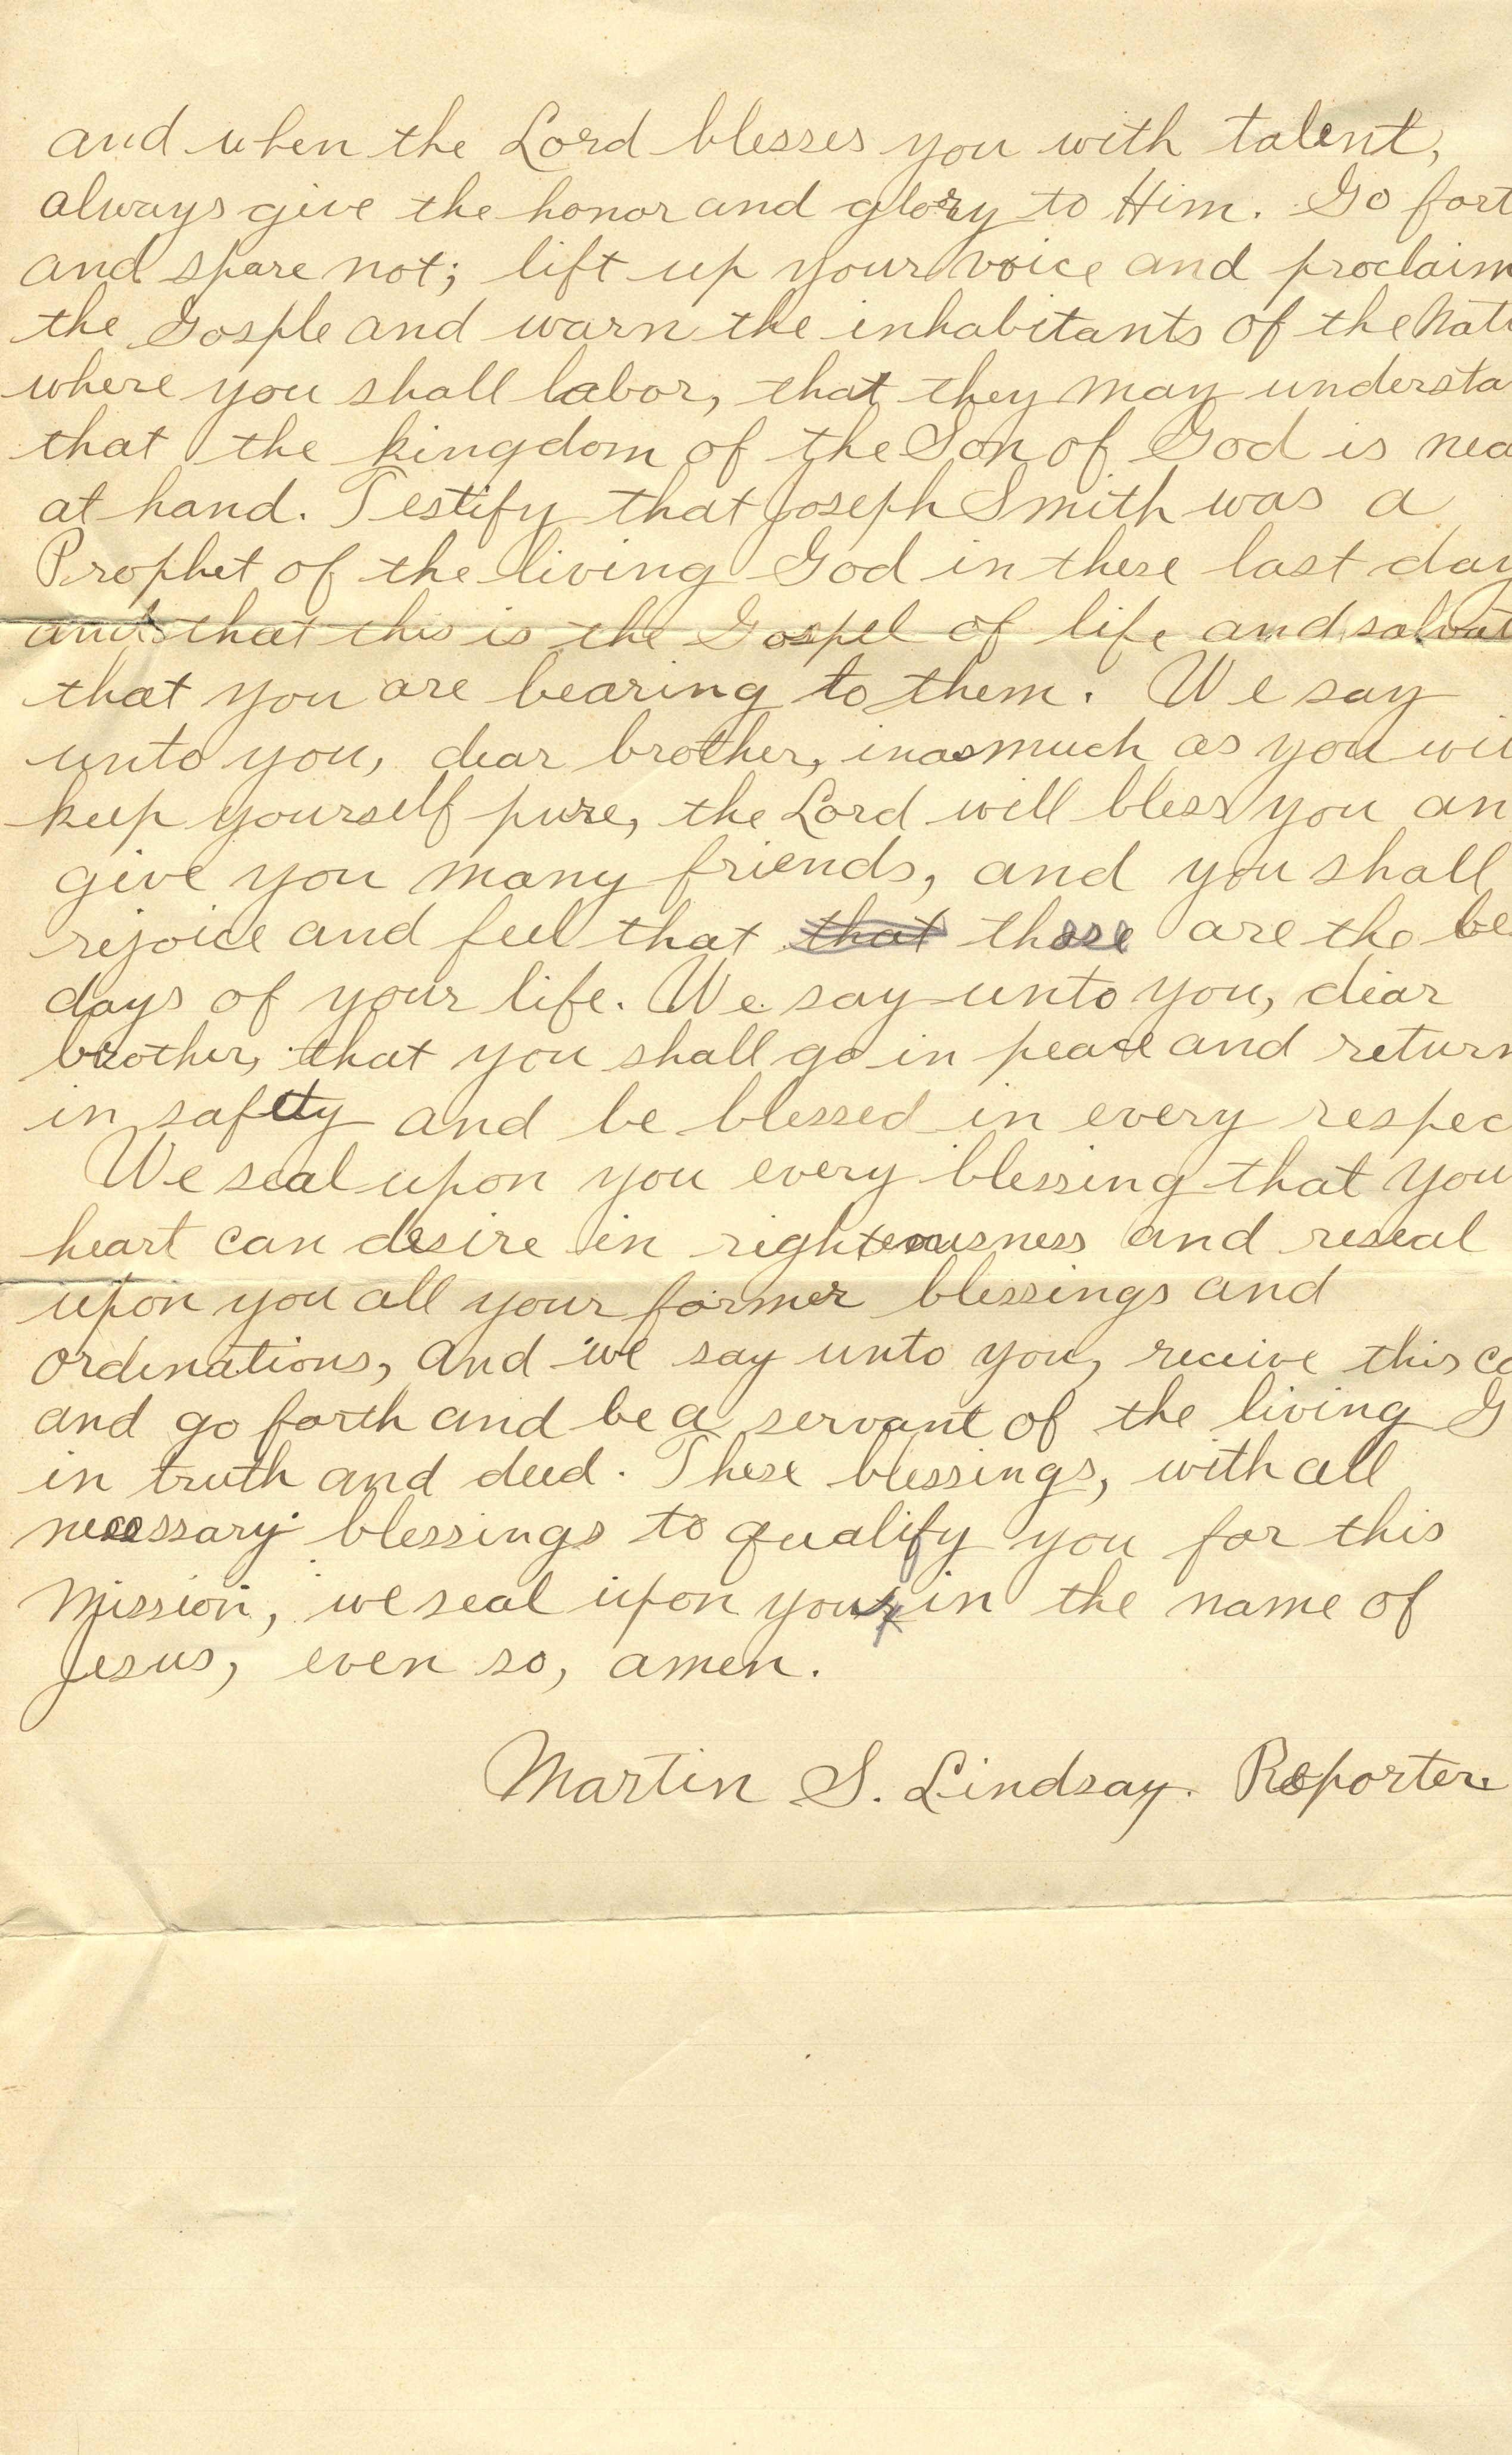 and when the Lord blesses you with talent,
always give the honor and glory to Him. Go fort
and spare not; lift up your voice and proclaim
the Gosple and warn the inhabitants of the Nati
where you shall labor, that they may understa
that the kingdom of the Son of God is nea
at hand. Testify that Joseph Smith was a
Prophet of the living God in these last day
and that this is the Gospel of life and salvat
that you are bearing to them. We say
unto you, dear brother, inasmuch as you wil
keep yourself pure, the Lord will bless you an
give you many friends, and you shall
rejoice and feel that that those are the be
days of your life. We say unto you, dear
brother, that you shall go in peace and return
in safety and be blessed in every respec
We seal upon you every blessing that you
heart can desire in righteousness and reseal
upon you all your former blessings and
ordinations, and we say unto you, receive this ca
and go forth and be a servant of the living G
in truth and deed. These blessings, with all
necessary blessings to qualify you for this
Mission, we seal upon you in the name of
Jesus, even so, amen.
Martin S. Lindsay. Reporter